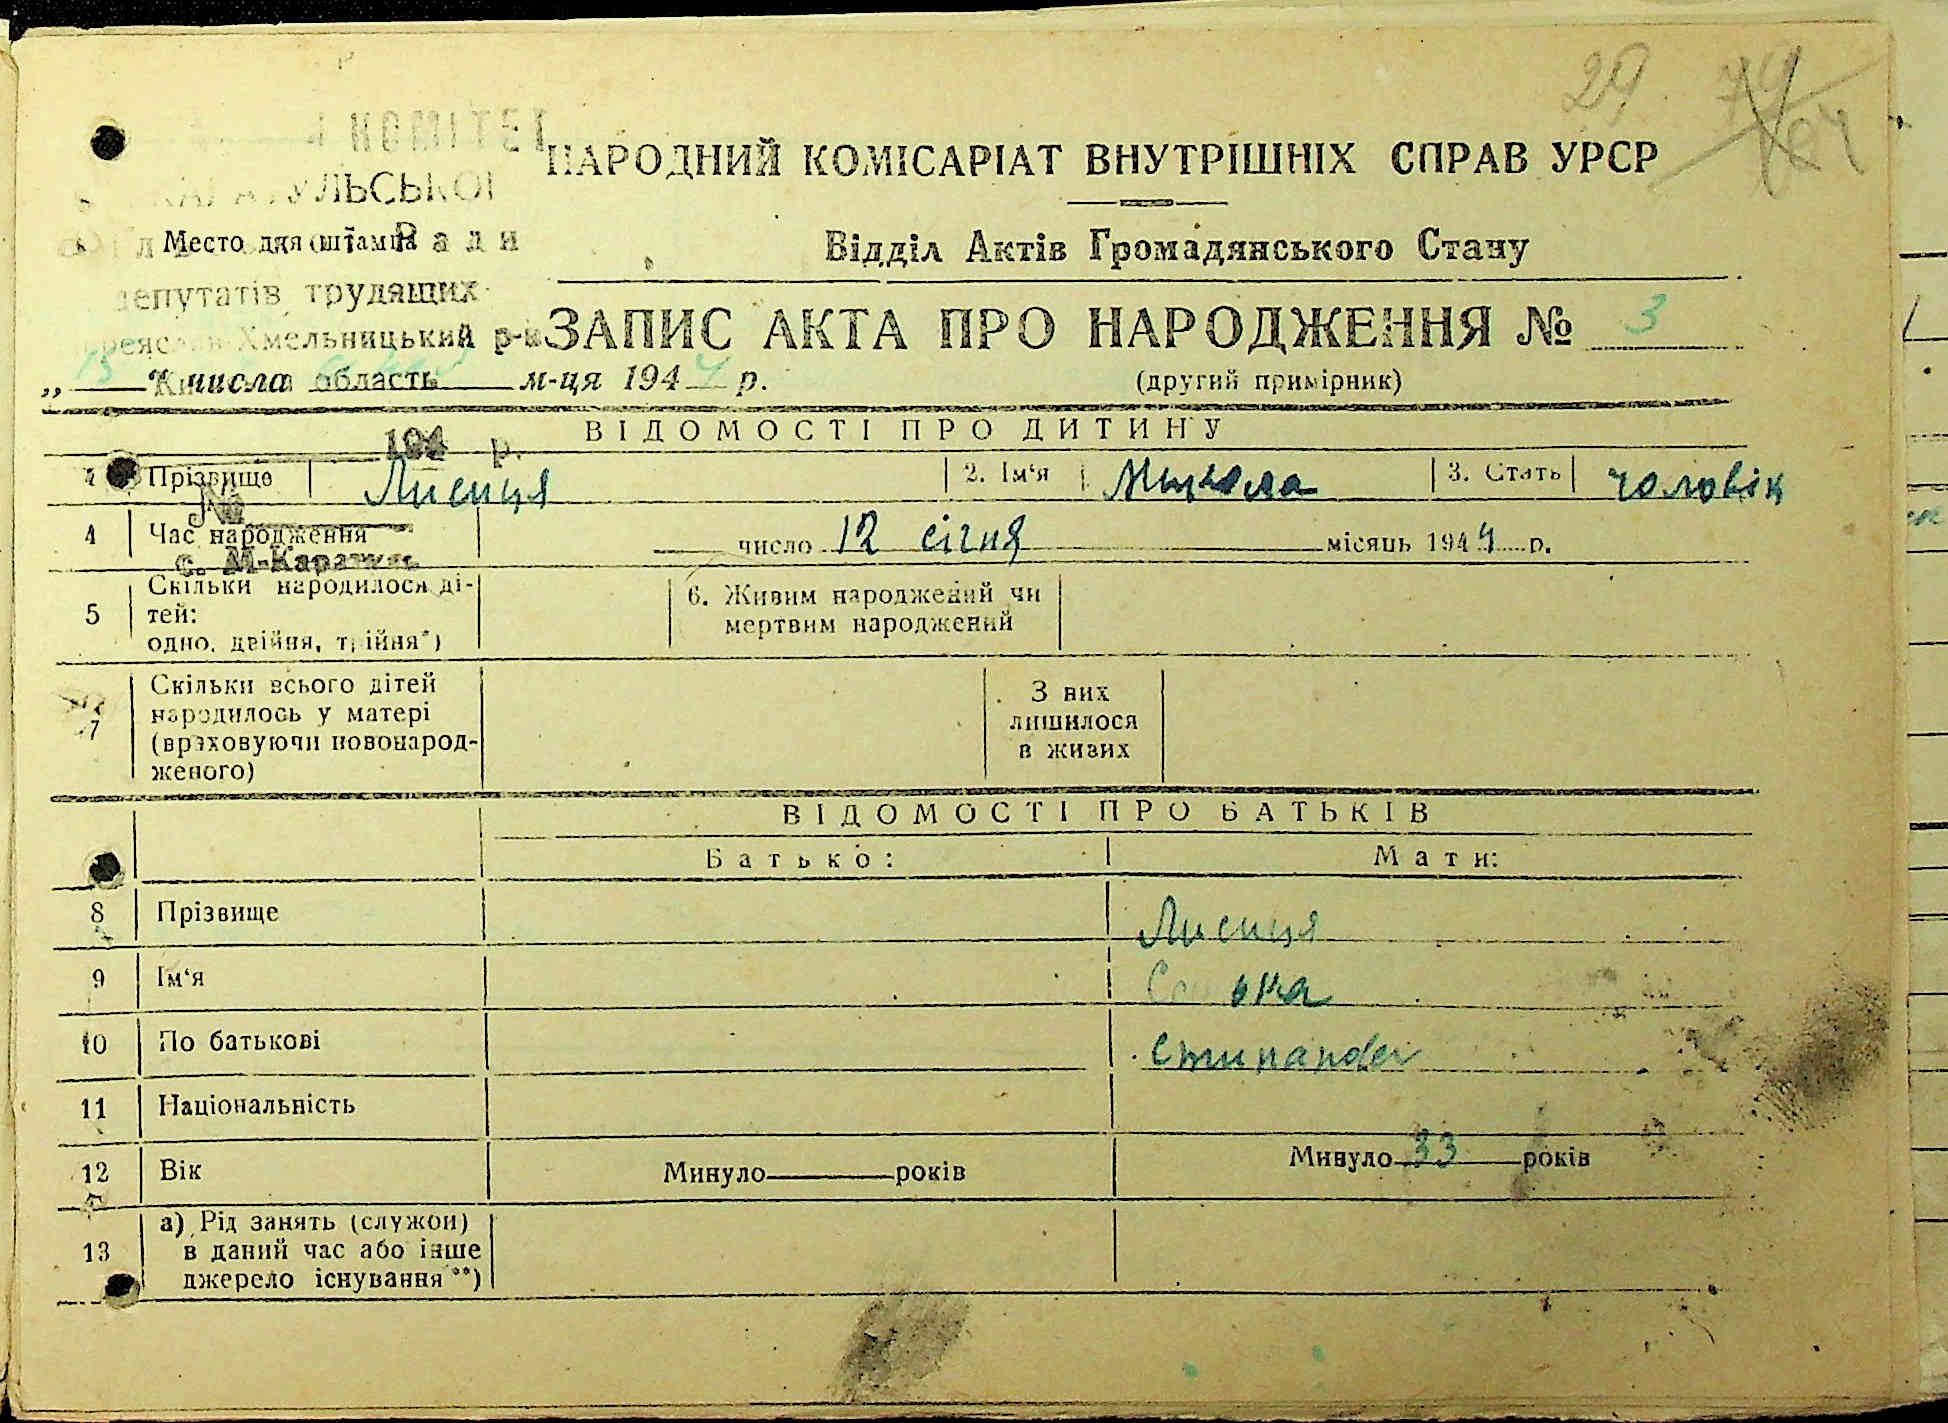 29
НАРОДНИЙ КОМІСАРІАТ ВНУТРІШНІХ СПРАВ УРСР
Место для штампа
Ради
Відділ Актів Громадянського Стану
депутатів трудящих
Хмельницький р-н
ЗАПИС АКТА ПРО НАРОДЖЕННЯ № 3
„ 15 “ числа м-ця 1944 р.
область
(другий примірник)
194 р.
ВІДОМОСТІ ПРО ДИТИНУ
1 Прізвище Лисиця 2. Ім‘я Микола 3. Стать чоловік
№
4 Час народження число 12 січня місяць 1944 р.
с. М-Каратуль
5 Скільки народилося ді-
тей:
одно, двійня, трійня*)
6. Живим народжений чи
мертвим народжений
7 Скільки всього дітей
народилось у матері
(враховуючи новонарод-
женого)
З них
лишилося
в живих
ВІДОМОСТІ ПРО БАТЬКІВ
Батько: Мати:
8 Прізвище Лисиця
9 Ім‘я
10 По батькові
11 Національність
12 Вік Минуло років Минуло 33 років
13 а) Рід занять (служби)
в даний час або інше
джерело існування**)